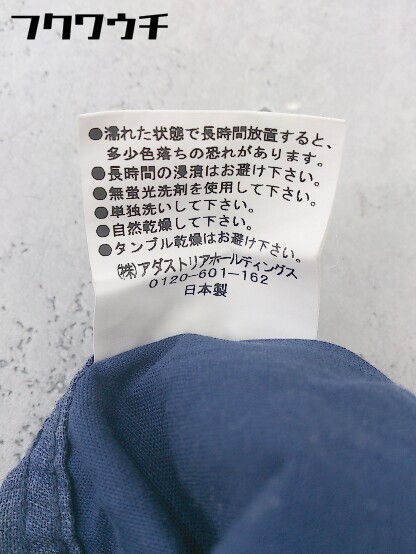 フクワウチ
●濡れた状態で長時間放置すると、
多少色落ちの恐れがあります。
●長時間の浸漬はお避け下さい。
●無蛍光洗剤を使用して下さい。
●単独洗いして下さい。
●自然乾燥して下さい。
●タンブル乾燥はお避け下さい。
㈱アダストリアホールディングス
0120-601-162
日本製